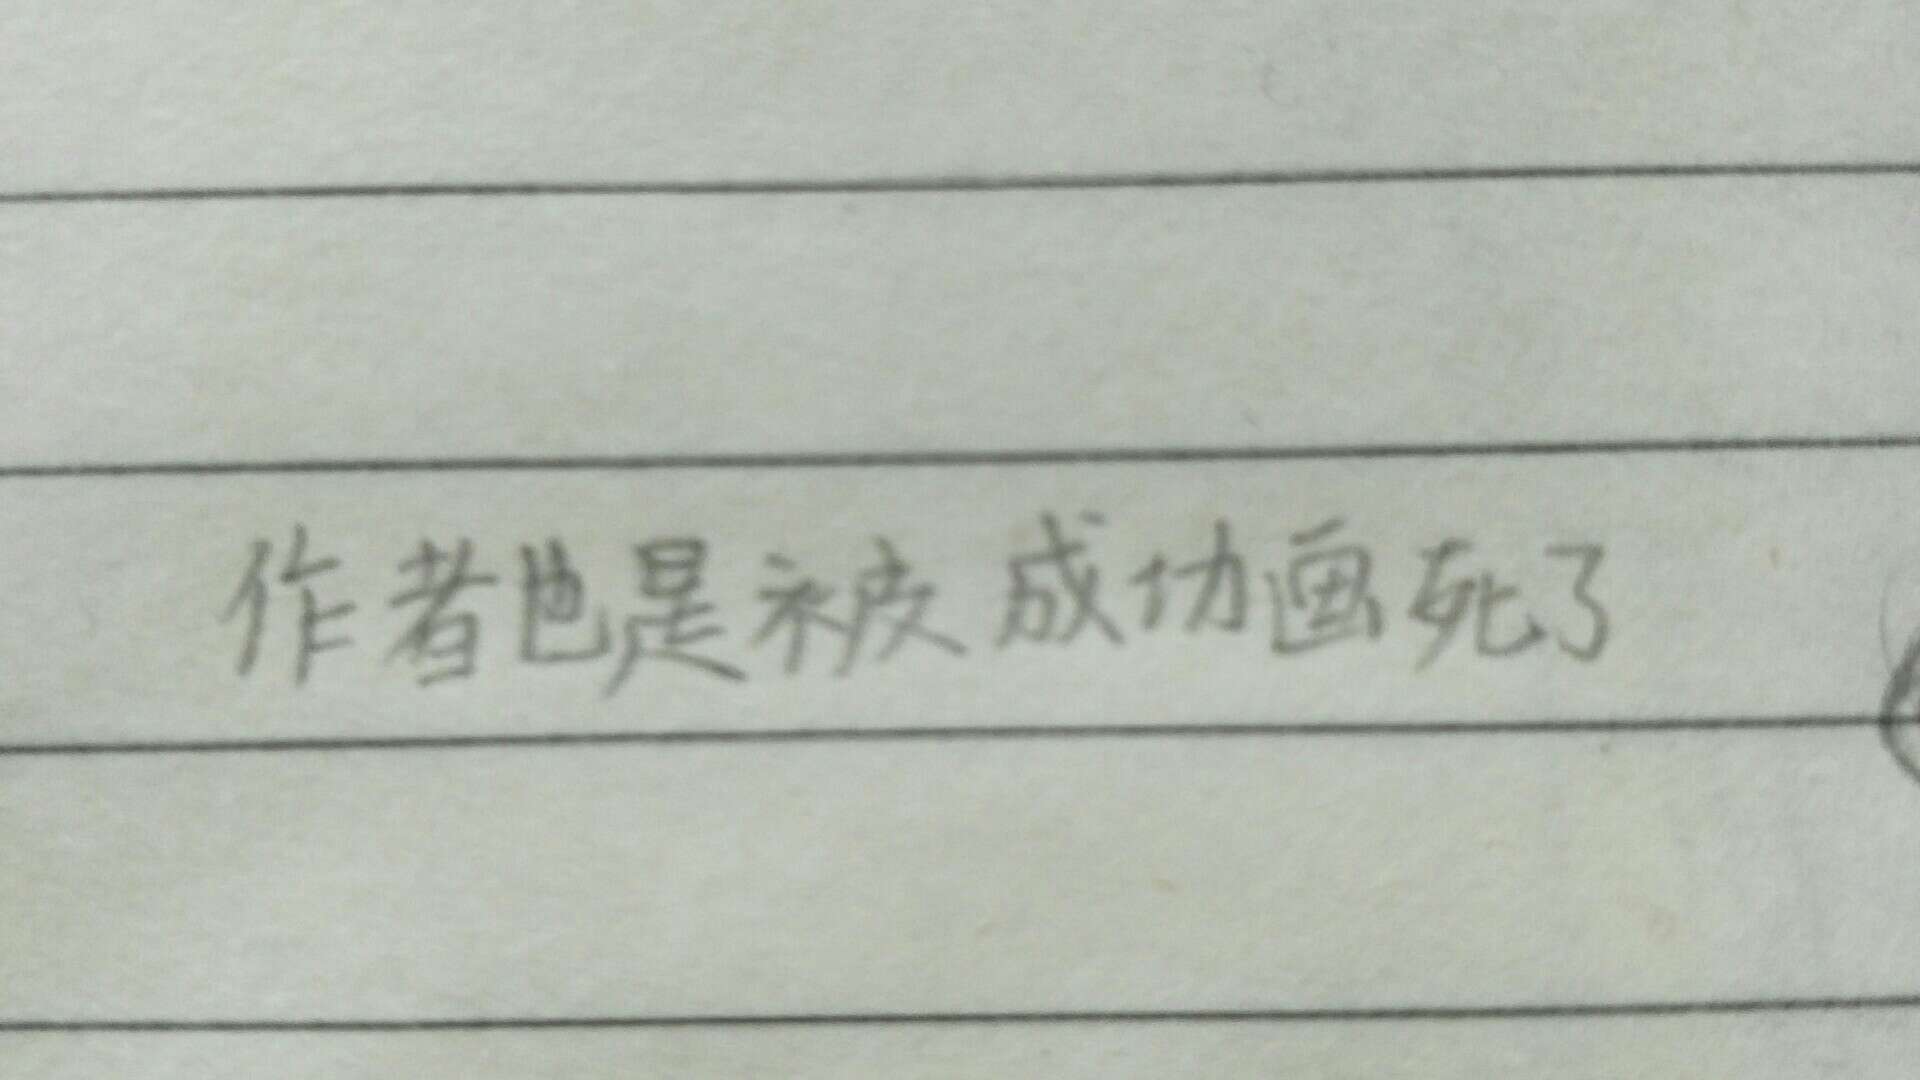 作者也是被成功画死了